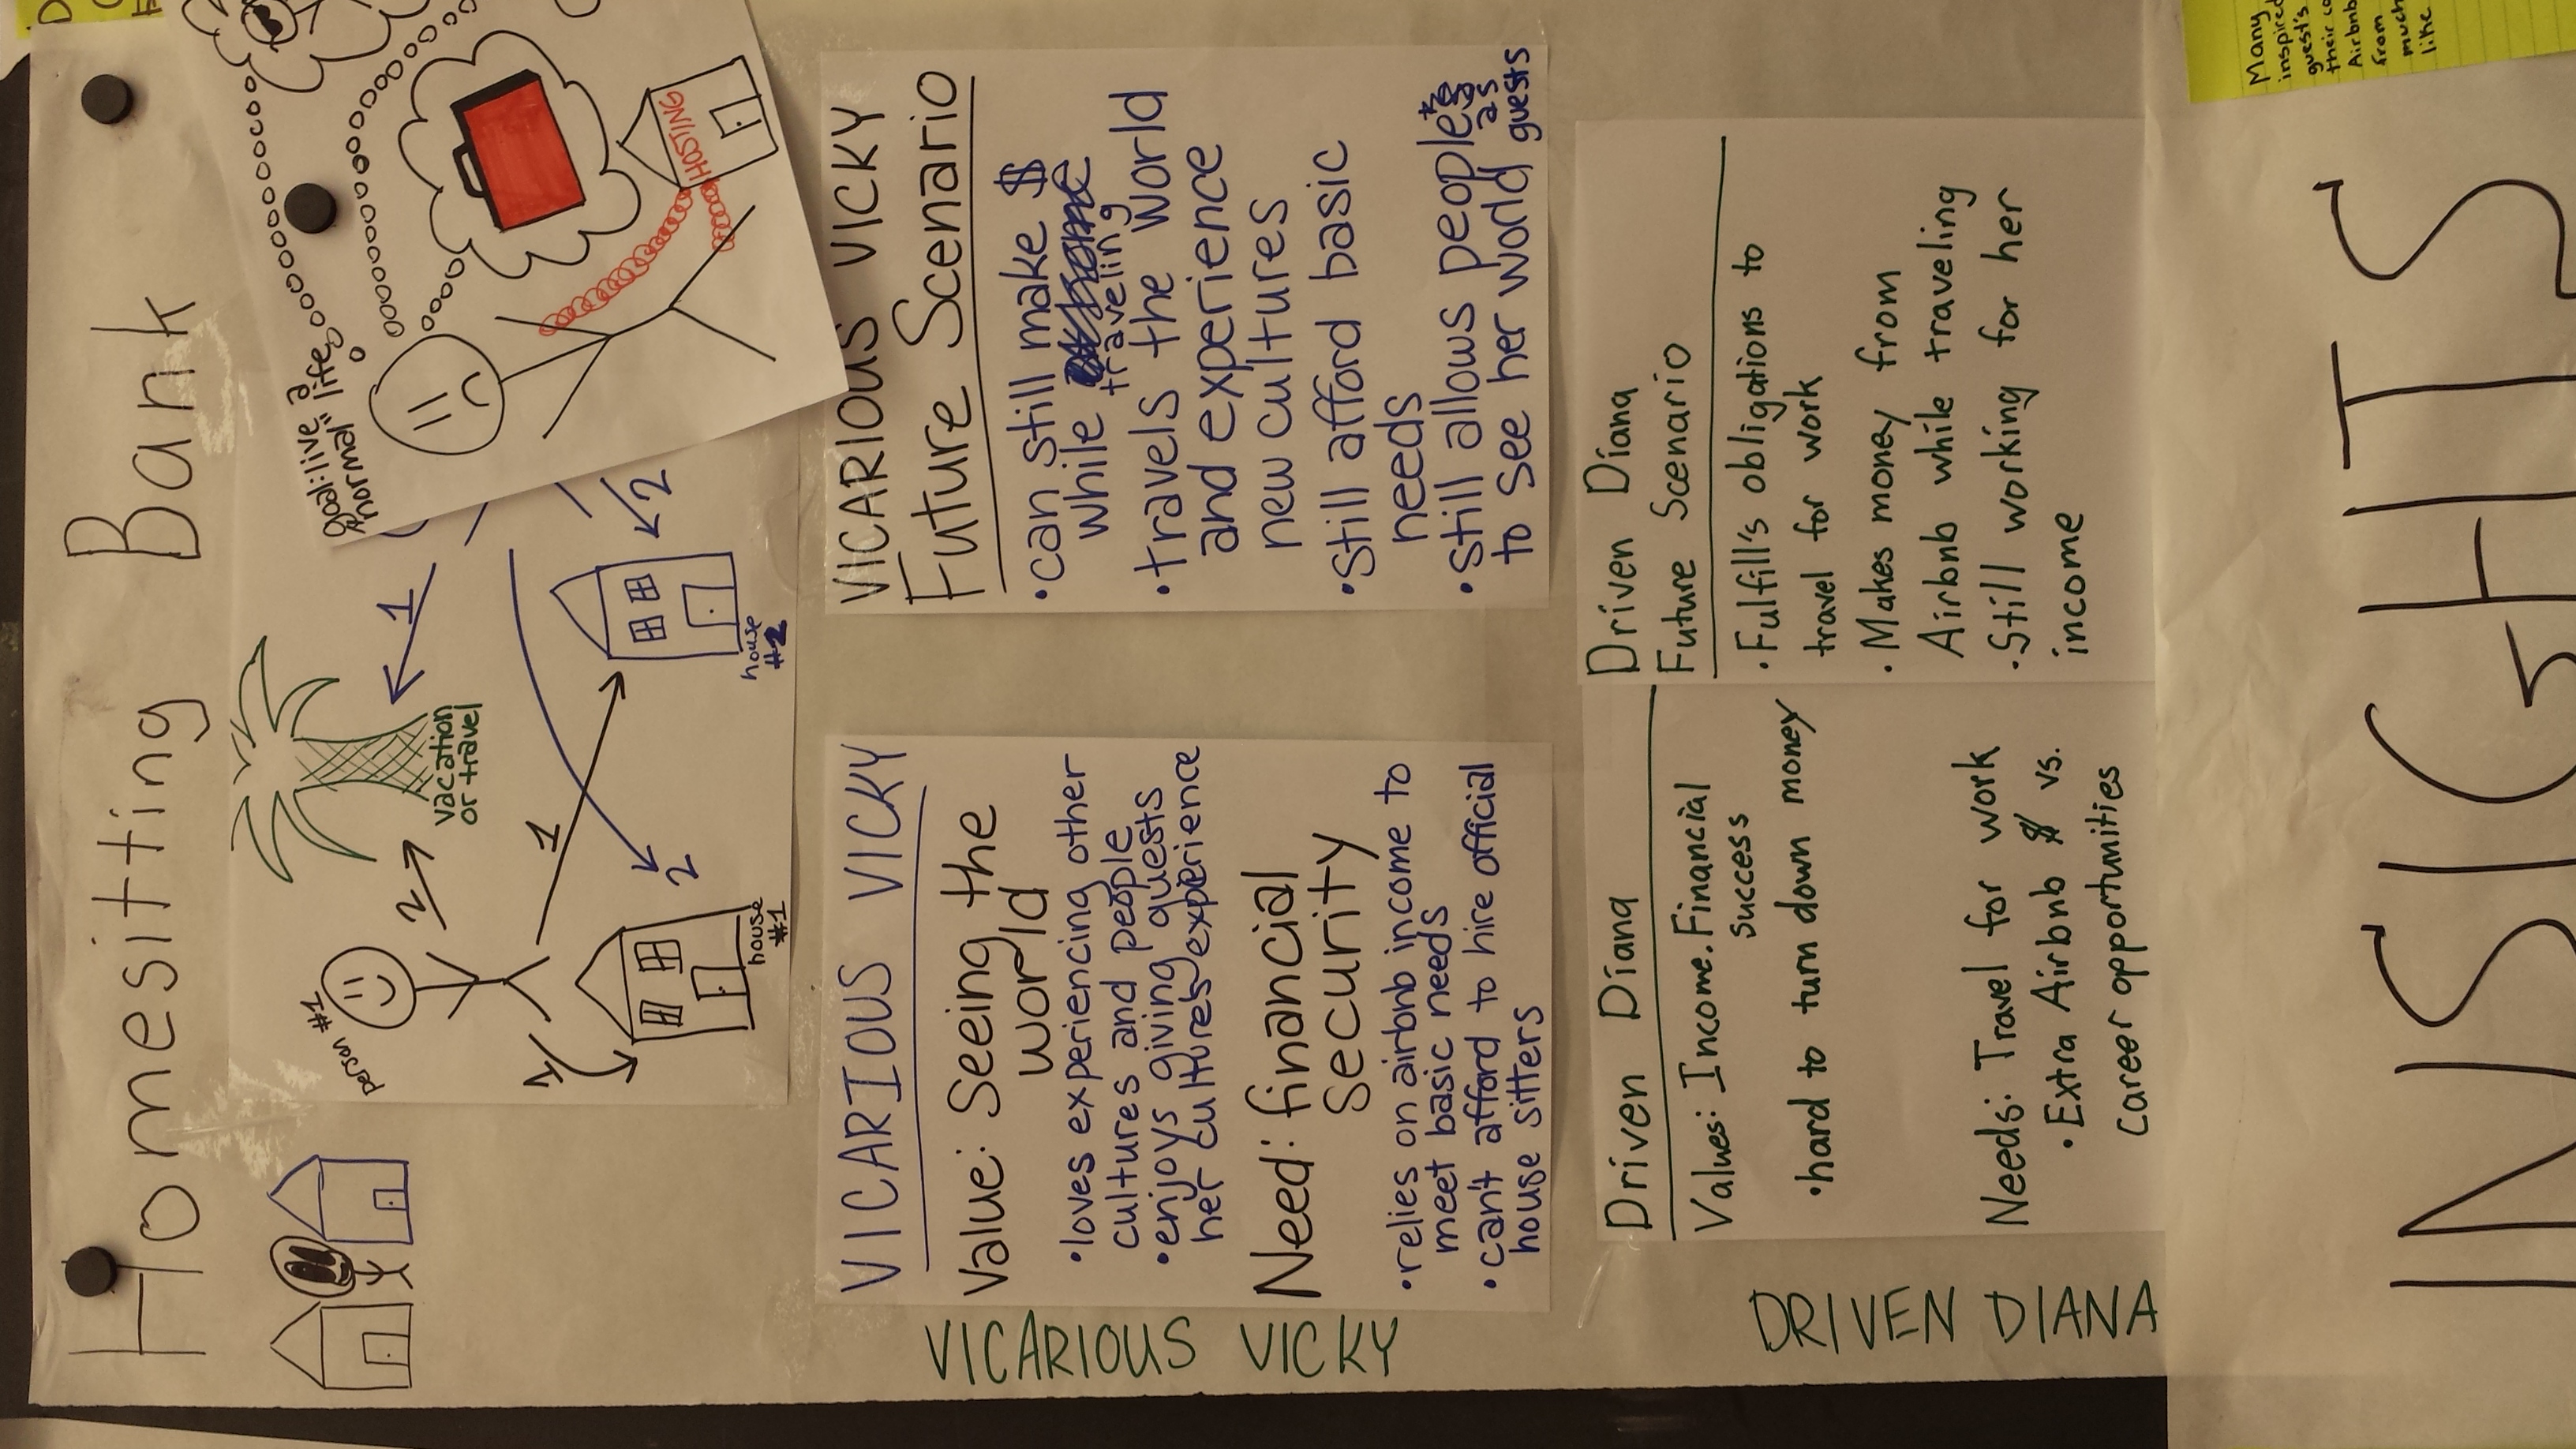 Homesitting Bank
person #1
2
vacation
or travel
1
1
1
2
2
house
#1
house
#2
goal: live a
"normal" life
HOSTING
VICARIOUS VICKY
VICARIOUS VICKY
Value: Seeing the
world
•loves experiencing other
cultures and people
•enjoys giving guests
her culture's experience
Need: financial
security
•relies on airbnb income to
meet basic needs
•can't afford to hire official
house sitters
VICARIOUS VICKY
Future Scenario
•can still make $
while
traveling
•travels the world
and experience
new cultures
•still afford basic
needs
•still allows people
as
to see her world guests
DRIVEN DIANA
Driven Diana
Values: Income. Financial
success
•hard to turn down money
Needs: Travel for work
•Extra Airbnb $ vs.
career opportunities
Driven Diana
Future Scenario
•Fulfill's obligations to
travel for work
•Makes money from
Airbnb while traveling
•Still working for her
income
INSIGHTS
Many
inspired
guest's
their
Airbnb
from
much
like